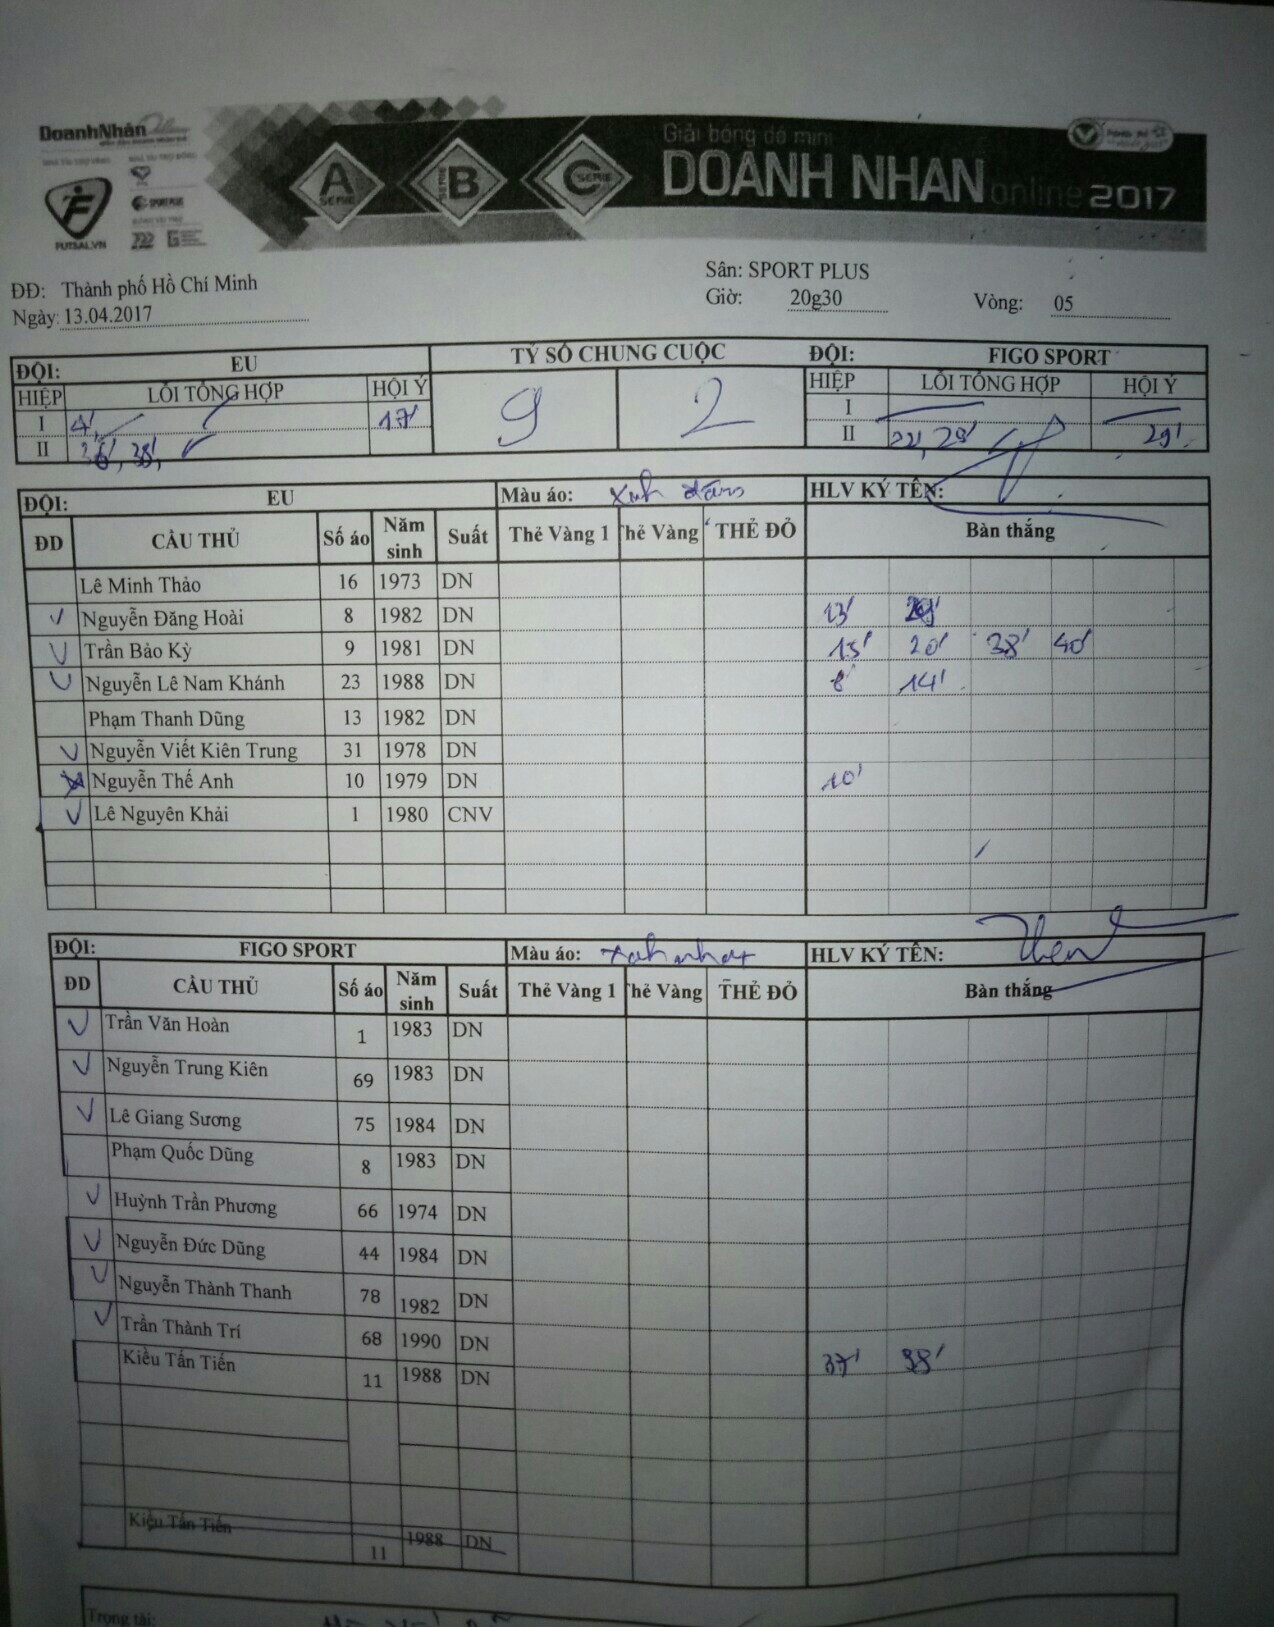 DoanhNhân Online
FUTSAL.VN
SPORT PLUS
A SERIE
SERIE B
C SERIE
Giải bóng đá mini
DOANH NHAN online 2017
ĐĐ: Thành phố Hồ Chí Minh
Sân: SPORT PLUS
Ngày: 13.04.2017
Giờ: 20g30 Vòng: 05
ĐỘI: EU TỶ SỐ CHUNG CUỘC ĐỘI: FIGO SPORT
HIỆP LỖI TỔNG HỢP HỘI Ý 9 2 HIỆP LỖI TỔNG HỢP HỘI Ý
I 4', 17' I
II 36', 38', II 22', 29' 29'
ĐỘI: EU Màu áo: xanh đậm HLV KÝ TÊN:
ĐD CẦU THỦ Số áo Năm sinh Suất Thẻ Vàng 1 Thẻ Vàng THẺ ĐỎ Bàn thắng
Lê Minh Thảo 16 1973 DN
Nguyễn Đăng Hoài 8 1982 DN 13' 29'
Trần Bảo Kỳ 9 1981 DN 15' 20' 38' 40'
Nguyễn Lê Nam Khánh 23 1988 DN 6' 14'
Phạm Thanh Dũng 13 1982 DN
Nguyễn Viết Kiên Trung 31 1978 DN
Nguyễn Thế Anh 10 1979 DN 10'
Lê Nguyên Khải 1 1980 CNV
ĐỘI: FIGO SPORT Màu áo: xanh nhạt HLV KÝ TÊN:
ĐD CẦU THỦ Số áo Năm sinh Suất Thẻ Vàng 1 Thẻ Vàng THẺ ĐỎ Bàn thắng
Trần Văn Hoàn 1 1983 DN
Nguyễn Trung Kiên 69 1983 DN
Lê Giang Sương 75 1984 DN
Phạm Quốc Dũng 8 1983 DN
Huỳnh Trần Phương 66 1974 DN
Nguyễn Đức Dũng 44 1984 DN
Nguyễn Thành Thanh 78 1982 DN
Trần Thành Trí 68 1990 DN
Kiều Tấn Tiến 11 1988 DN 37' 38'
Kiều Tấn Tiến 11 1988 DN
Trọng tài: